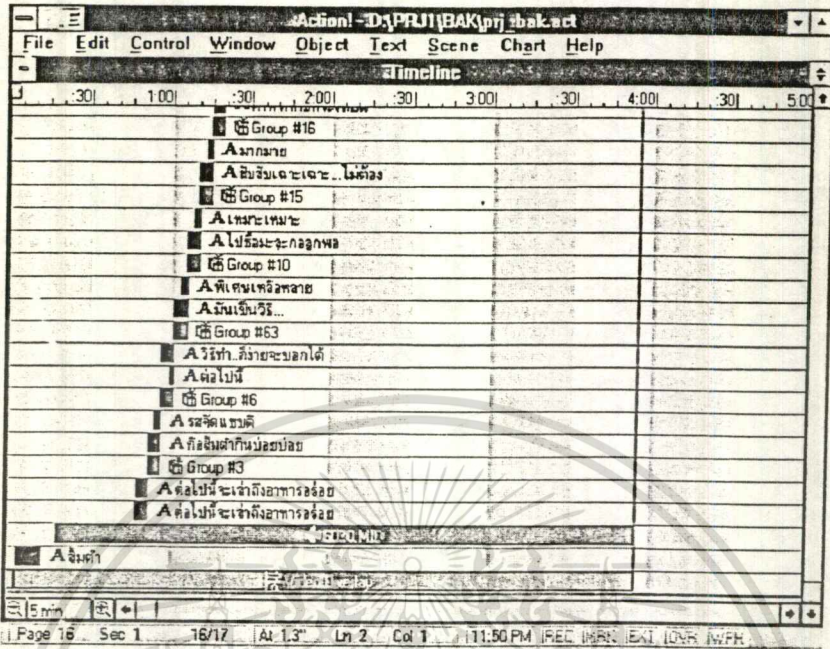 Action! - D:\PRJ1\BAK\prj_bak.act
File Edit Control Window Object Text Scene Chart Help
Timeline
:30 1:00 :30 2:00 :30 3:00 :30 4:00 :30 5:00
Group #16
A มากมาย
A สับสับเฉาะเฉาะ...ไม่ต้อง
Group #15
A เหมาะเหมาะ
A ไปซื้อมะละกอลูกพอ
Group #10
A พิเศษเหลือหลาย
A มันเป็นวิธี...
Group #63
A วิธีทำ..ก็ง่ายจะบอกได้
A ต่อไปนี้
Group #6
A รสจัดแซบดี
A คือส้มตำกินบ่อยบ่อย
Group #3
A ต่อไปนี้จะเล่าถึงอาหารอร่อย
A ต่อไปนี้จะเล่าถึงอาหารอร่อย
A ส้มตำ
5 min
Page 16 Sec 1 16/17 At 1.3" Ln 2 Col 1 11:50 PM REC MRK EXT OVR WPH